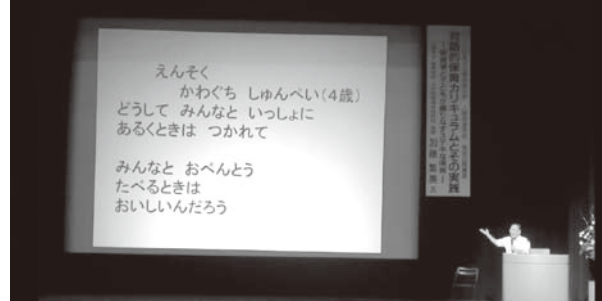 えんそく
かわぐち しゅんぺい(4歳)
どうして みんなと いっしょに
あるくときは つかれて
みんなと おべんとう
たべるときは
おいしいんだろう
対話的保育カリキュラムとその実践